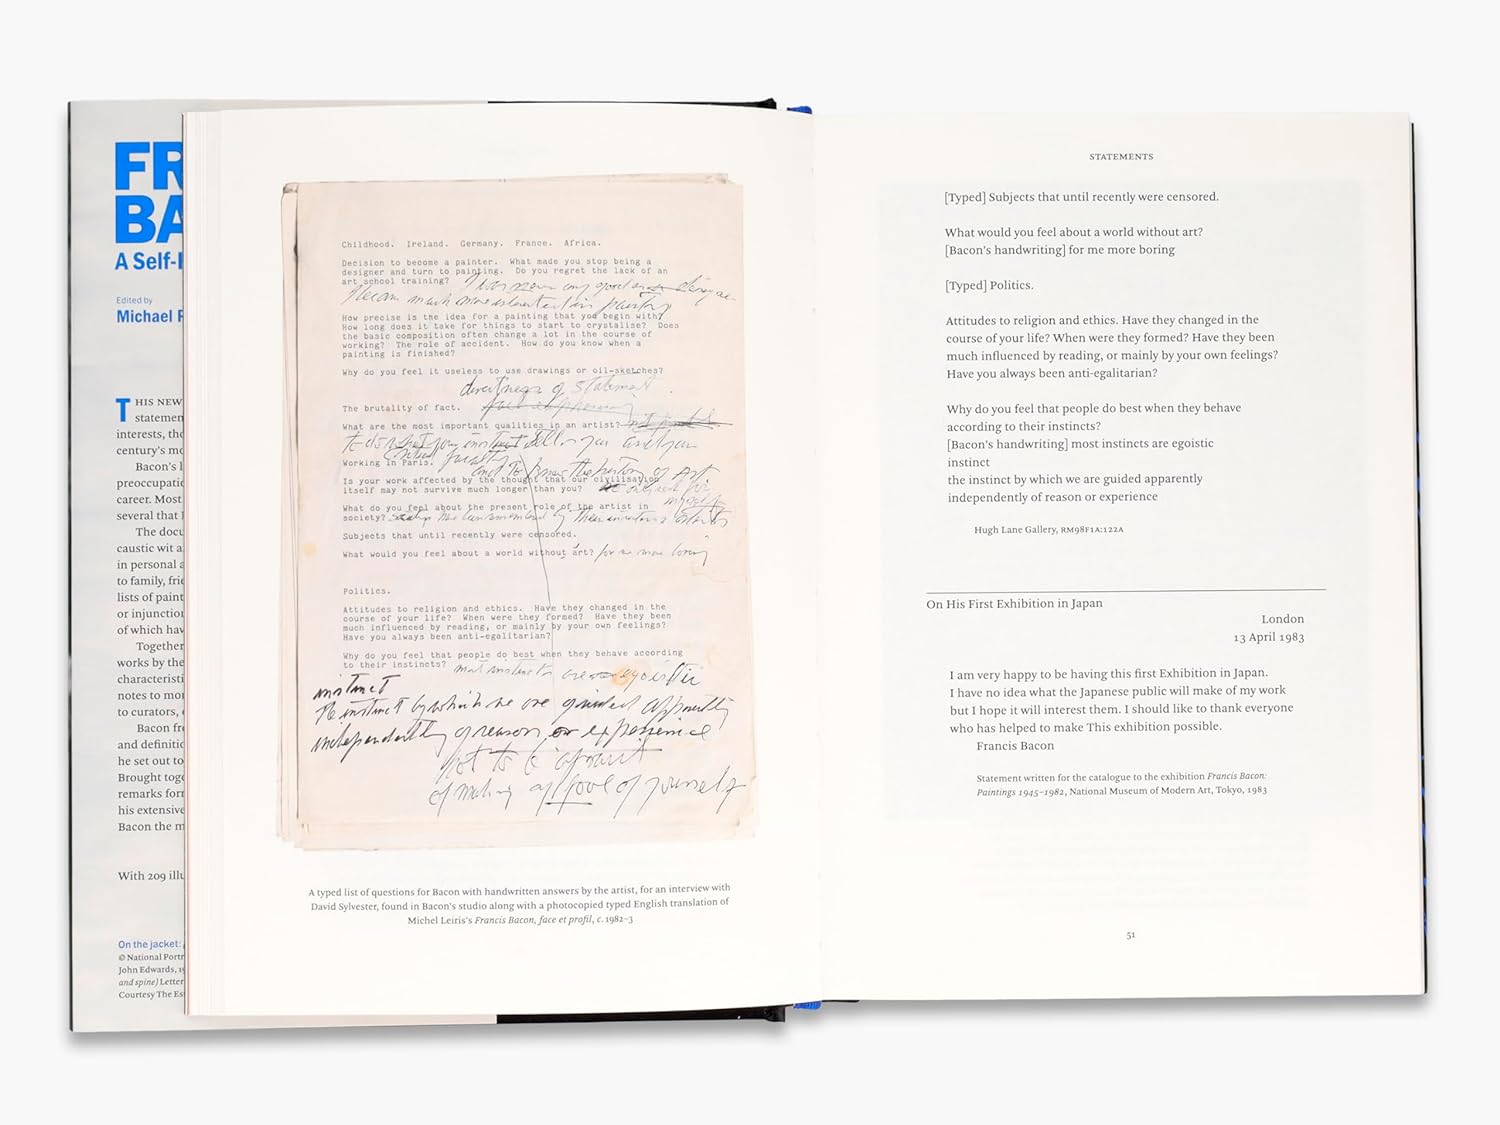 FR
BA
A Self-
Edited by
Michael
THIS NEW
statemen
interests, tho
century's mo
Bacon's l
preoccupatio
career. Most
several that
The docu
caustic wit a
in personal a
to family, frie
lists of paint
or injunction
of which hav
Together
works by the
characteristi
notes to mo
to curators,
Bacon fr
and definitio
he set out to
Brought toge
remarks for
his extensive
Bacon the m
With 209 illu
On the jacket:
© National Portr
John Edwards, 19
and spine) Letter
Courtesy The Es
Childhood. Ireland. Germany. France. Africa.
Decision to become a painter. What made you stop being a
designer and turn to painting. Do you regret the lack of an
art school training? I was never any good as a designer
I became much more interested in painting
How precise is the idea for a painting that you begin with?
How long does it take for things to start to crystalise? Does
the basic composition often change a lot in the course of
working? The role of accident. How do you know when a
painting is finished?
Why do you feel it useless to use drawings or oil-sketches?
directness of statement
The brutality of fact.
What are the most important qualities in an artist?
to do what your instinct tells you and your
critical faculty
Working in Paris. and to know the history of art
Is your work affected by the thought that our civilisation
itself may not survive much longer than you?
What do you feel about the present role of the artist in
society?
Subjects that until recently were censored.
What would you feel about a world without art? for me more boring
Politics.
Attitudes to religion and ethics. Have they changed in the
course of your life? When were they formed? Have they been
much influenced by reading, or mainly by your own feelings?
Have you always been anti-egalitarian?
Why do you feel that people do best when they behave according
to their instincts? most instincts are egoistic
instinct
the instinct by which we are guided apparently
independently of reason or experience
not to be afraid
of making a fool of yourself
A typed list of questions for Bacon with handwritten answers by the artist, for an interview with
David Sylvester, found in Bacon's studio along with a photocopied typed English translation of
Michel Leiris's Francis Bacon, face et profil, c. 1982–3
STATEMENTS
[Typed] Subjects that until recently were censored.
What would you feel about a world without art?
[Bacon's handwriting] for me more boring
[Typed] Politics.
Attitudes to religion and ethics. Have they changed in the
course of your life? When were they formed? Have they been
much influenced by reading, or mainly by your own feelings?
Have you always been anti-egalitarian?
Why do you feel that people do best when they behave
according to their instincts?
[Bacon's handwriting] most instincts are egoistic
instinct
the instinct by which we are guided apparently
independently of reason or experience
Hugh Lane Gallery, RM98F1A:122A
On His First Exhibition in Japan
London
13 April 1983
I am very happy to be having this first Exhibition in Japan.
I have no idea what the Japanese public will make of my work
but I hope it will interest them. I should like to thank everyone
who has helped to make This exhibition possible.
Francis Bacon
Statement written for the catalogue to the exhibition Francis Bacon:
Paintings 1945–1982, National Museum of Modern Art, Tokyo, 1983
51